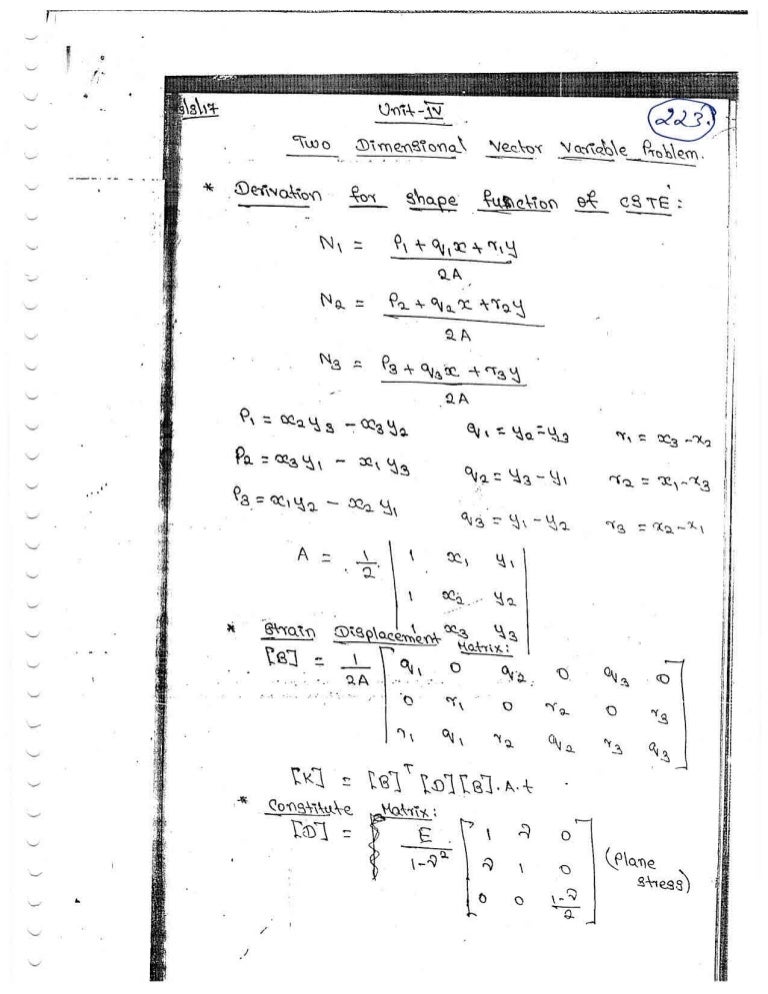 6/3/17
Unit-IV
223.
Two Dimensional Vector Variable Problem.
* Derivation for shape function of CSTE:
N₁ = (P₁ + q₁x + r₁y) / 2A
N₂ = (P₂ + q₂x + r₂y) / 2A
N₃ = (P₃ + q₃x + r₃y) / 2A
P₁ = x₂y₃ - x₃y₂ q₁ = y₂ = y₃ r₁ = x₃ - x₂
P₂ = x₃y₁ - x₁y₃ q₂ = y₃ - y₁ r₂ = x₁ - x₃
P₃ = x₁y₂ - x₂y₁ q₃ = y₁ - y₂ r₃ = x₂ - x₁
A = 1/2 | 1 x₁ y₁
1 x₂ y₂
1 x₃ y₃ |
* Strain Displacement Matrix:
[B] = 1/2A [ q₁ 0 q₂ 0 q₃ 0
0 r₁ 0 r₂ 0 r₃
r₁ q₁ r₂ q₂ r₃ q₃ ]
[K] = [B]ᵀ [D] [B] . A . t
* Constitute Matrix:
[D] = E / (1-ν²) [ 1 ν 0
ν 1 0
0 0 (1-ν)/2 ] (Plane stress)